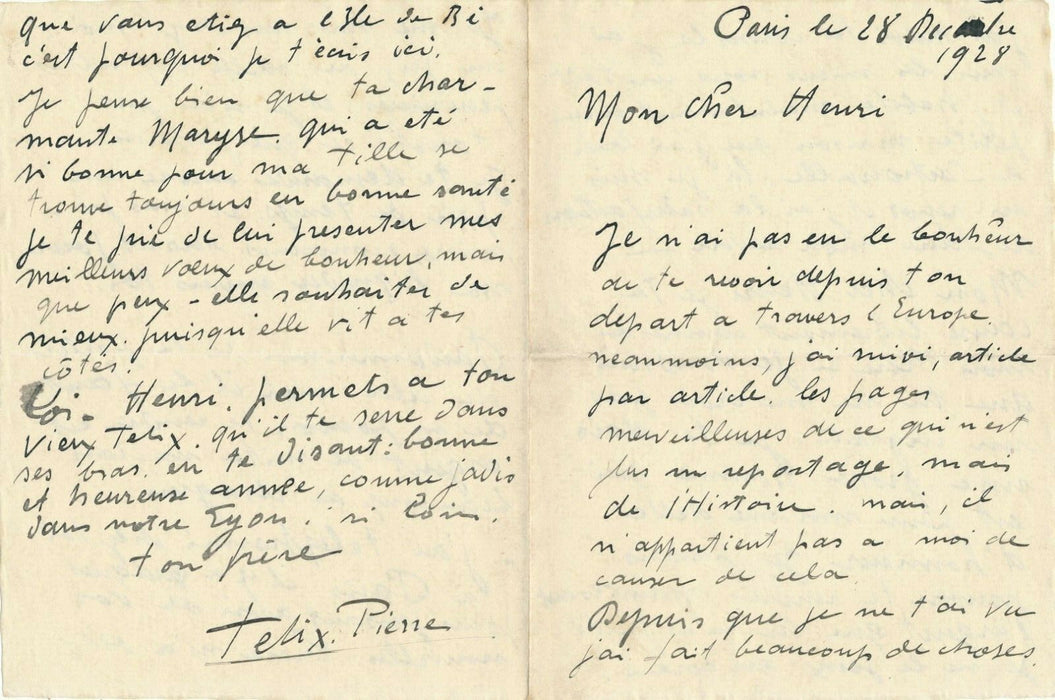 Paris le 28 Decembre
1928
Mon cher Henri
Je n'ai pas eu le bonheur
de te revoir depuis ton
depart a travers l'Europe
neanmoins, j'ai suivi, article
par article. les pages
merveilleuses de ce qui n'est
plus un reportage, mais
de l'Histoire. mais, il
n'appartient pas a moi de
causer de cela
Depuis que je ne t'ai vu
j'ai fait beaucoup de choses.
que vous etiez a l'Ile de Ré
c'est pourquoi je t'écris ici.
Je pense bien que ta char-
mante Maryse. qui a eté
si bonne pour ma fille se
trouve toujours en bonne santé
je te prie de lui presenter mes
meilleurs vœux de bonheur, mais
que peux-elle souhaiter de
mieux. puisqu'elle vit a tes
côtés!
Toi- Henri. permets a ton
vieux Felix. qu'il te serre dans
ses bras. en te disant: bonne
et heureuse année, comme jadis
dans notre Lyon. si loin.
ton frère
Felix. Pierre